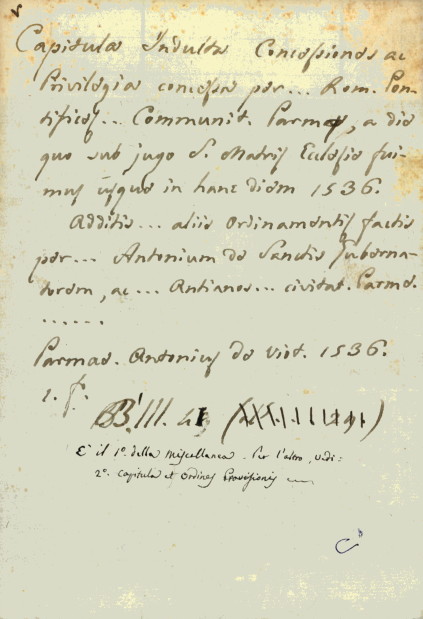 Capitula Indulta Concessiones ac
Privilegia concessa per... Rom. Pon-
tifices... Communit. Parmae, a die
quo sub jugo S. Matris Eclesie fui-
mus usque in hanc diem 1536.
Additis... aliis Ordinamentis factis
per... Antonium de Sanctis Guberna-
torem, ac... Antianos... civitat. Parme.
......
Parmae. Antonius de Viot. 1536.
2. f.
BB. III.
E' il 1º della Miscellanea. Per l'altro, vedi:
2º. Capitula et Ordines Provisionis